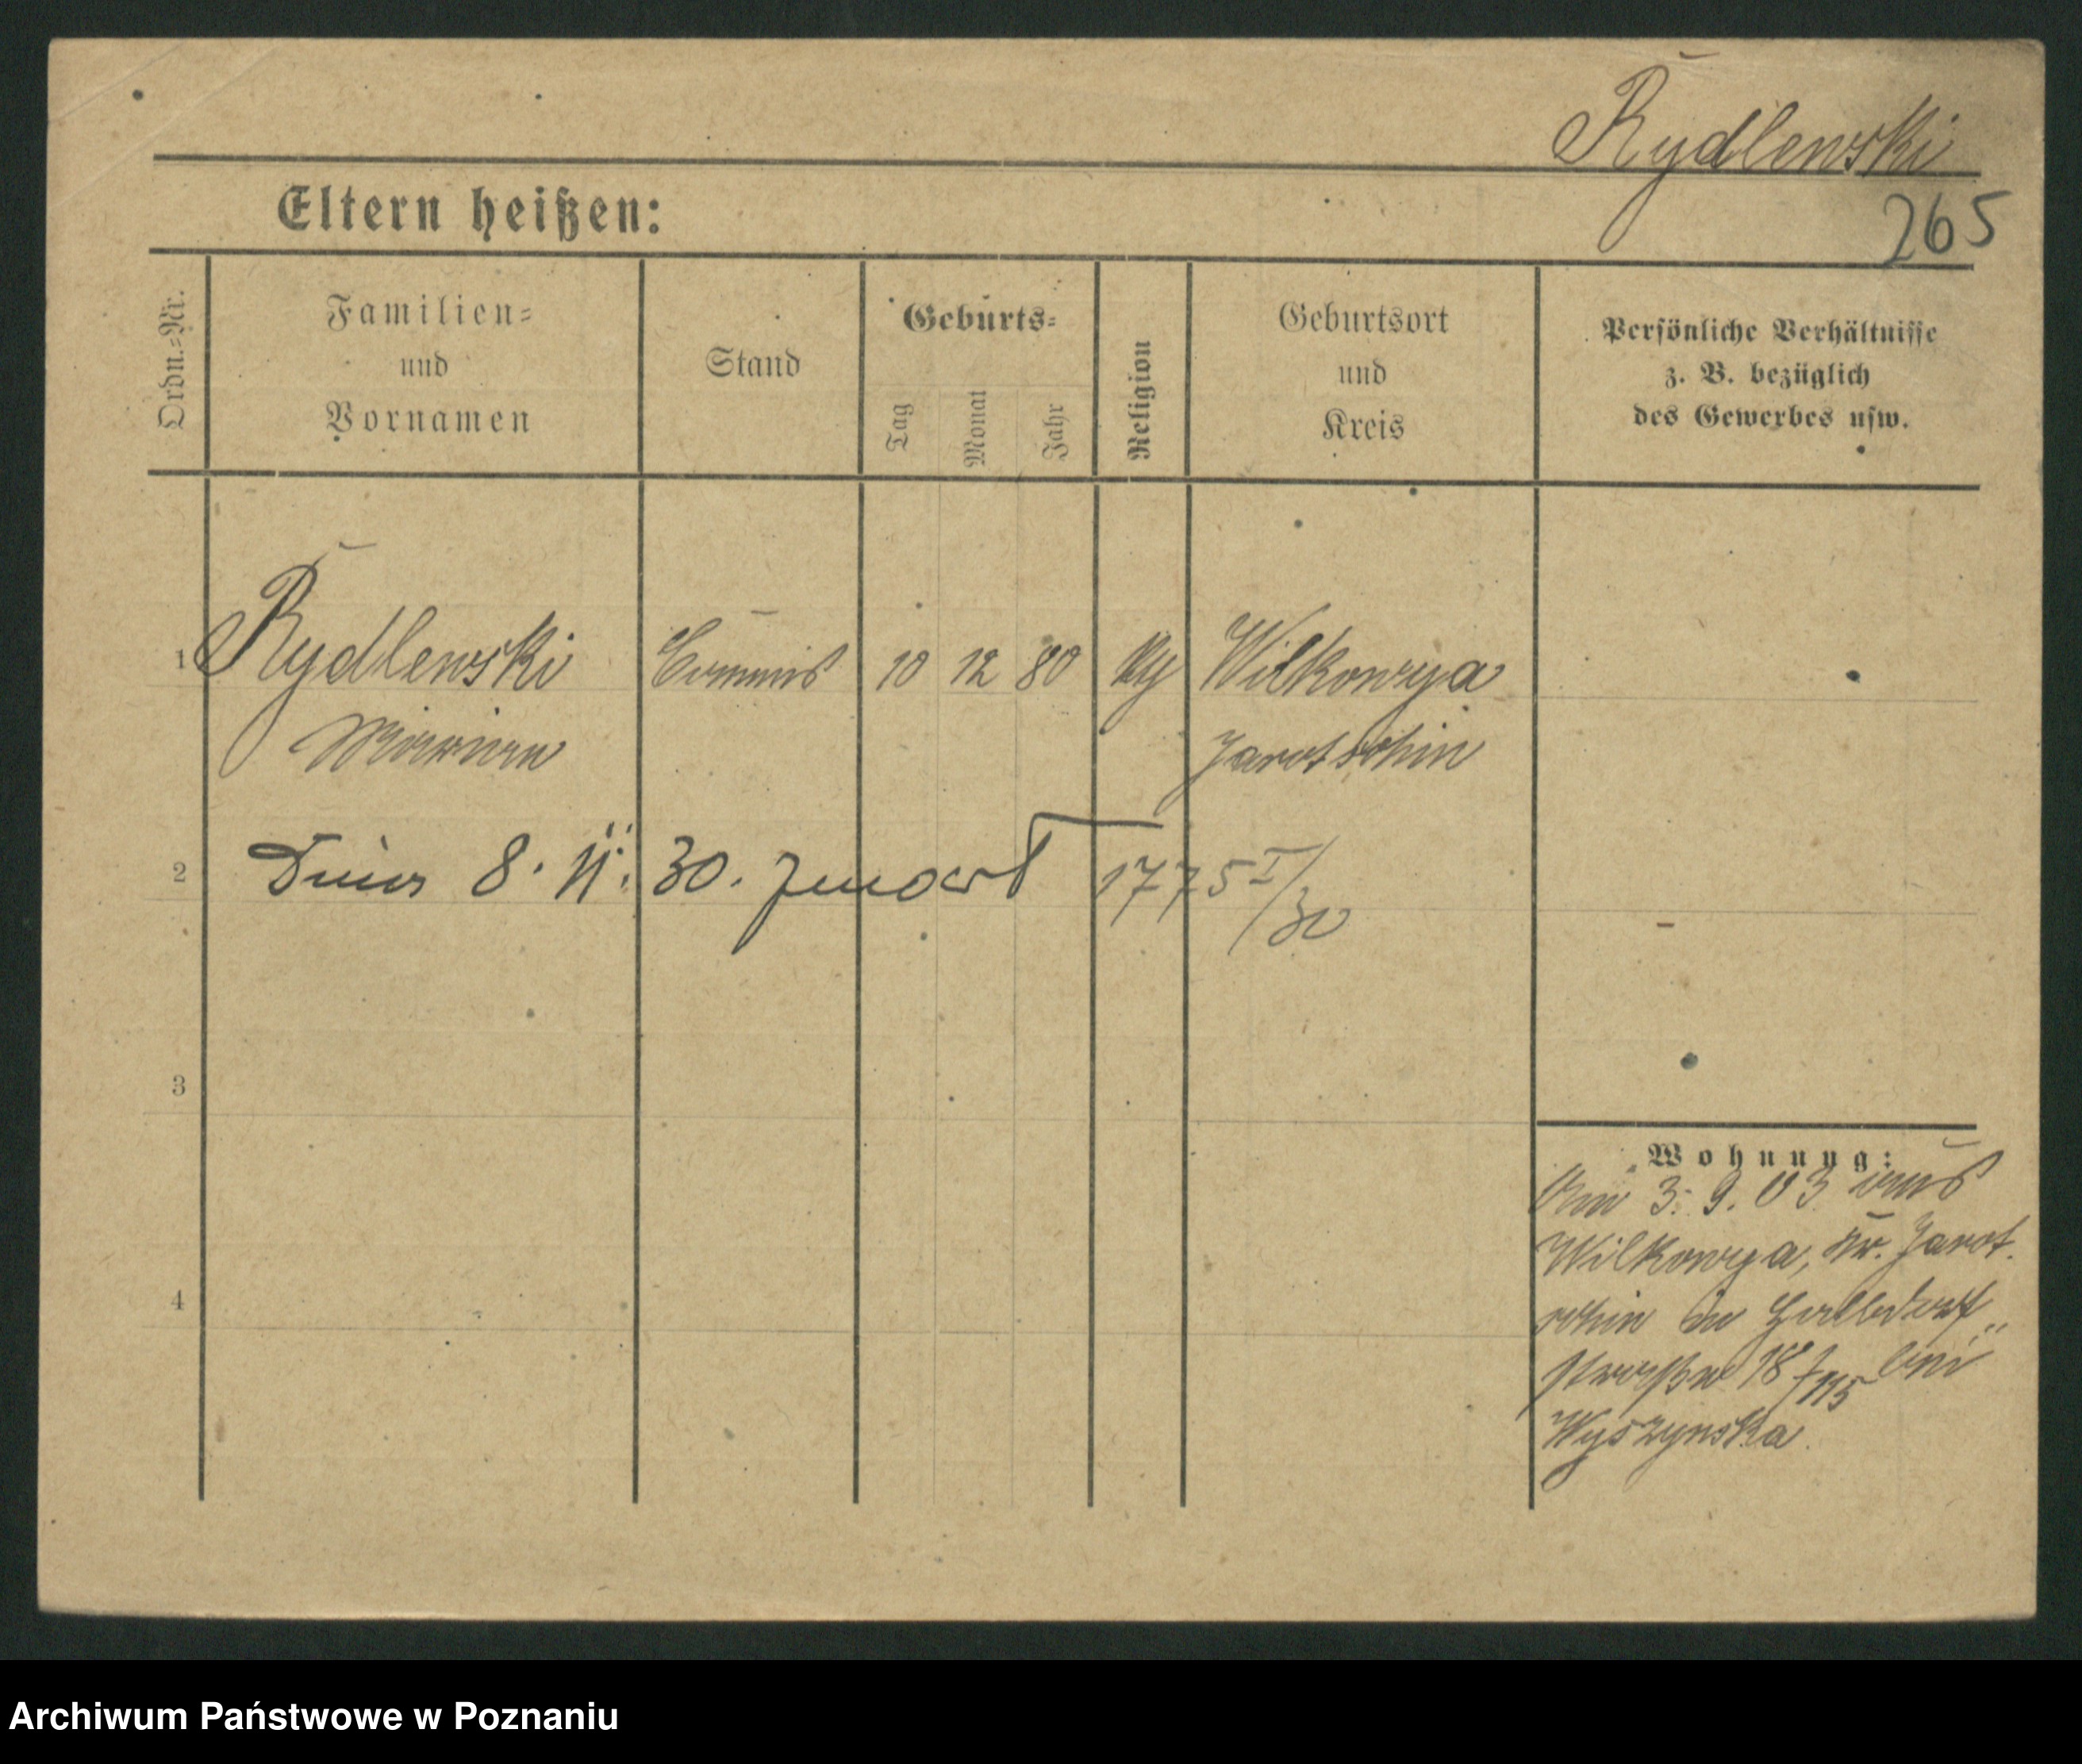 Rydlewski
Eltern heißen:
265
Ordn.-Nr.
Familien-
und
Vornamen
Stand
Geburts-
Tag
Monat
Jahr
Religion
Geburtsort
und
Kreis
Persönliche Verhältnisse
z. B. bezüglich
des Gewerbes usw.
1 Rydlewski Commis 10 12 80 Wilkowya
Jarotschin
2 8. 11. 30. 1775 I/30
3
4
Wohnung:
3. 9. 03 aus
Wilkowya, Kr. Jarot.
schin in
18 bei
Wyszynska
Archiwum Państwowe w Poznaniu